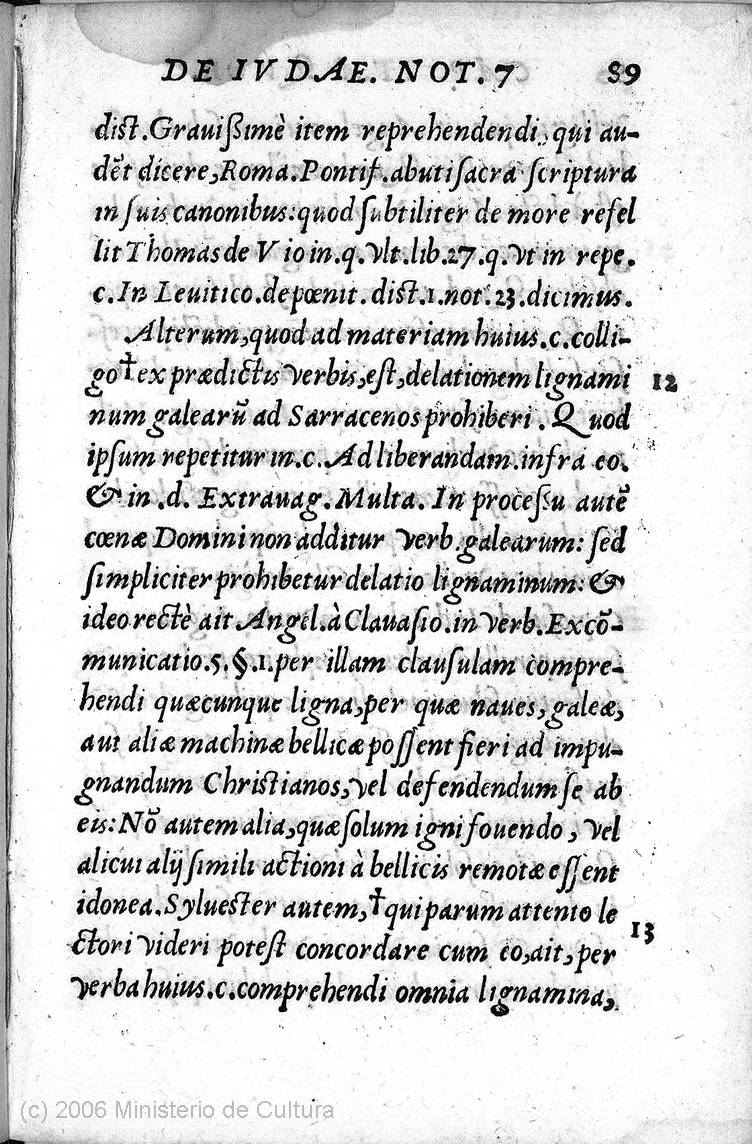 DE IVDAE. NOT. 7 89
dist. Grauißimè item reprehendendi, qui au-
dēt dicere, Roma. Pontif. abuti sacra scriptura
in suis canonibus: quod subtiliter de more refel
lit Thomas de Vio in. q. vlt. lib. 27. q. vt in repe.
c. In Leuitico. de pœnit. dist. 1. not. 23. dicimus.
Alterum, quod ad materiam huius. c. colli-
go † ex prædictis verbis, est, delationem lignami 12
num galearū ad Sarracenos prohiberi. Quod
ipsum repetitur in. c. Ad liberandam. infra eo.
& in .d. Extrauag. Multa. In processu autē
cœnæ Domini non additur verb. galearum: sed
simpliciter prohibetur delatio lignaminum: &
ideo rectè ait Angel. à Clauasio. in verb. Excō-
municatio. 5. §. 1. per illam clausulam compre-
hendi quæcunque ligna, per quæ naues, galeæ,
aut aliæ machinæ bellicæ possent fieri ad impu-
gnandum Christianos, vel defendendum se ab
eis: Nō autem alia, quæ solum igni fouendo, vel
alicui alij simili actioni à bellicis remotæ essent
idonea. Syluester autem, † qui parum attento le
ctori videri potest concordare cum eo, ait, per 13
verba huius. c. comprehendi omnia lignamina,
(c) 2006 Ministerio de Cultura